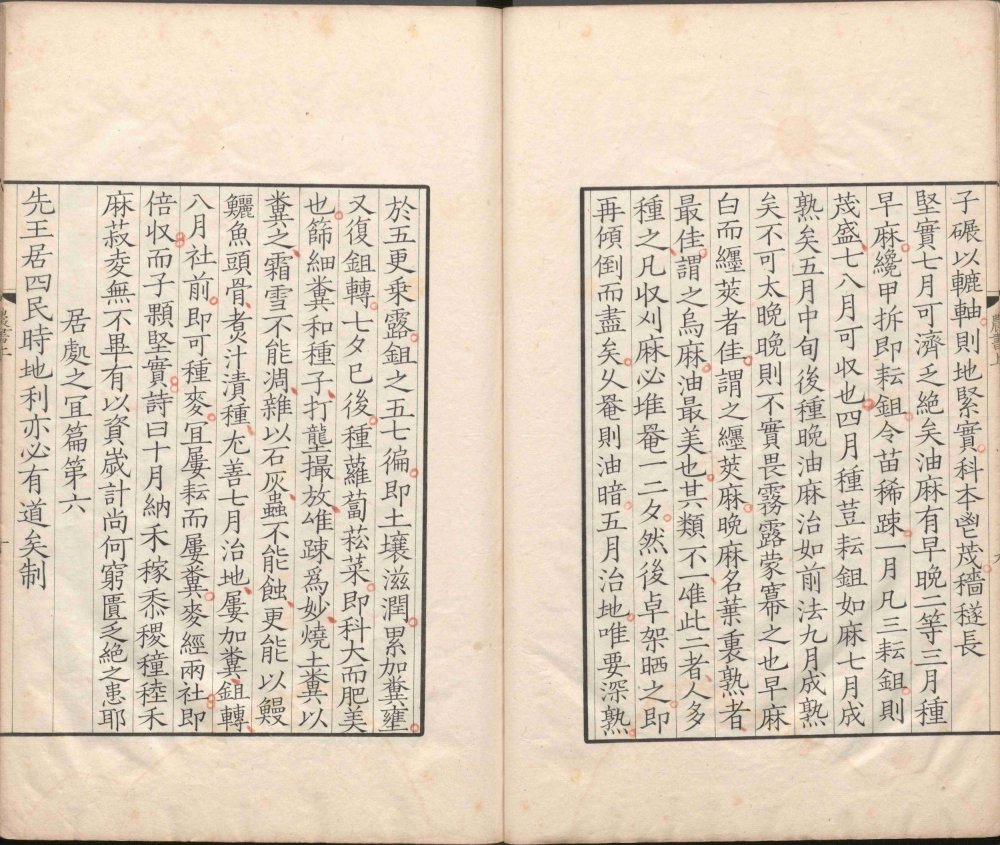 子碾以轆軸則地緊實科本鬯茂穡穟長
堅實七月可濟乏絕矣油麻有早晚二等三月種
早麻纔甲拆即耘鉏令苗稀踈一月凡三耘鉏則
茂盛七八月可收也四月種荳耘鉏如麻七月成
熟矣五月中旬後種晚油麻治如前法九月成熟
矣不可太晚晚則不實畏霧露蒙冪之也早麻
白而纏莢者佳謂之纏莢麻晚麻名葉裏熟者
最佳謂之烏麻油最美也其類不一唯此二者人多
種之凡收刈麻必堆罨一二夕然後卓架晒之即
再傾倒而盡矣乆罨則油暗五月治地唯要深熟
於五更乗露鉏之五七徧即土壤滋潤累加糞壅
又復鉏轉七夕已後種蘿蔔菘菜即科大而肥美
也篩細糞和種子打壟撮放唯踈爲妙燒土糞以
糞之霜雪不能凋雜以石灰蟲不能蝕更能以鰻
鱺魚頭骨煑汁漬種尤善七月治地屢加糞鉏轉
八月社前即可種麥冝屢耘而屢糞麥經兩社即
倍收而子顆堅實詩曰十月納禾稼黍稷穜稑禾
麻菽麥無不畢有以資嵗計尚何窮匱乏絕之患耶
居處之冝篇第六
先王居四民時地利亦必有道矣制